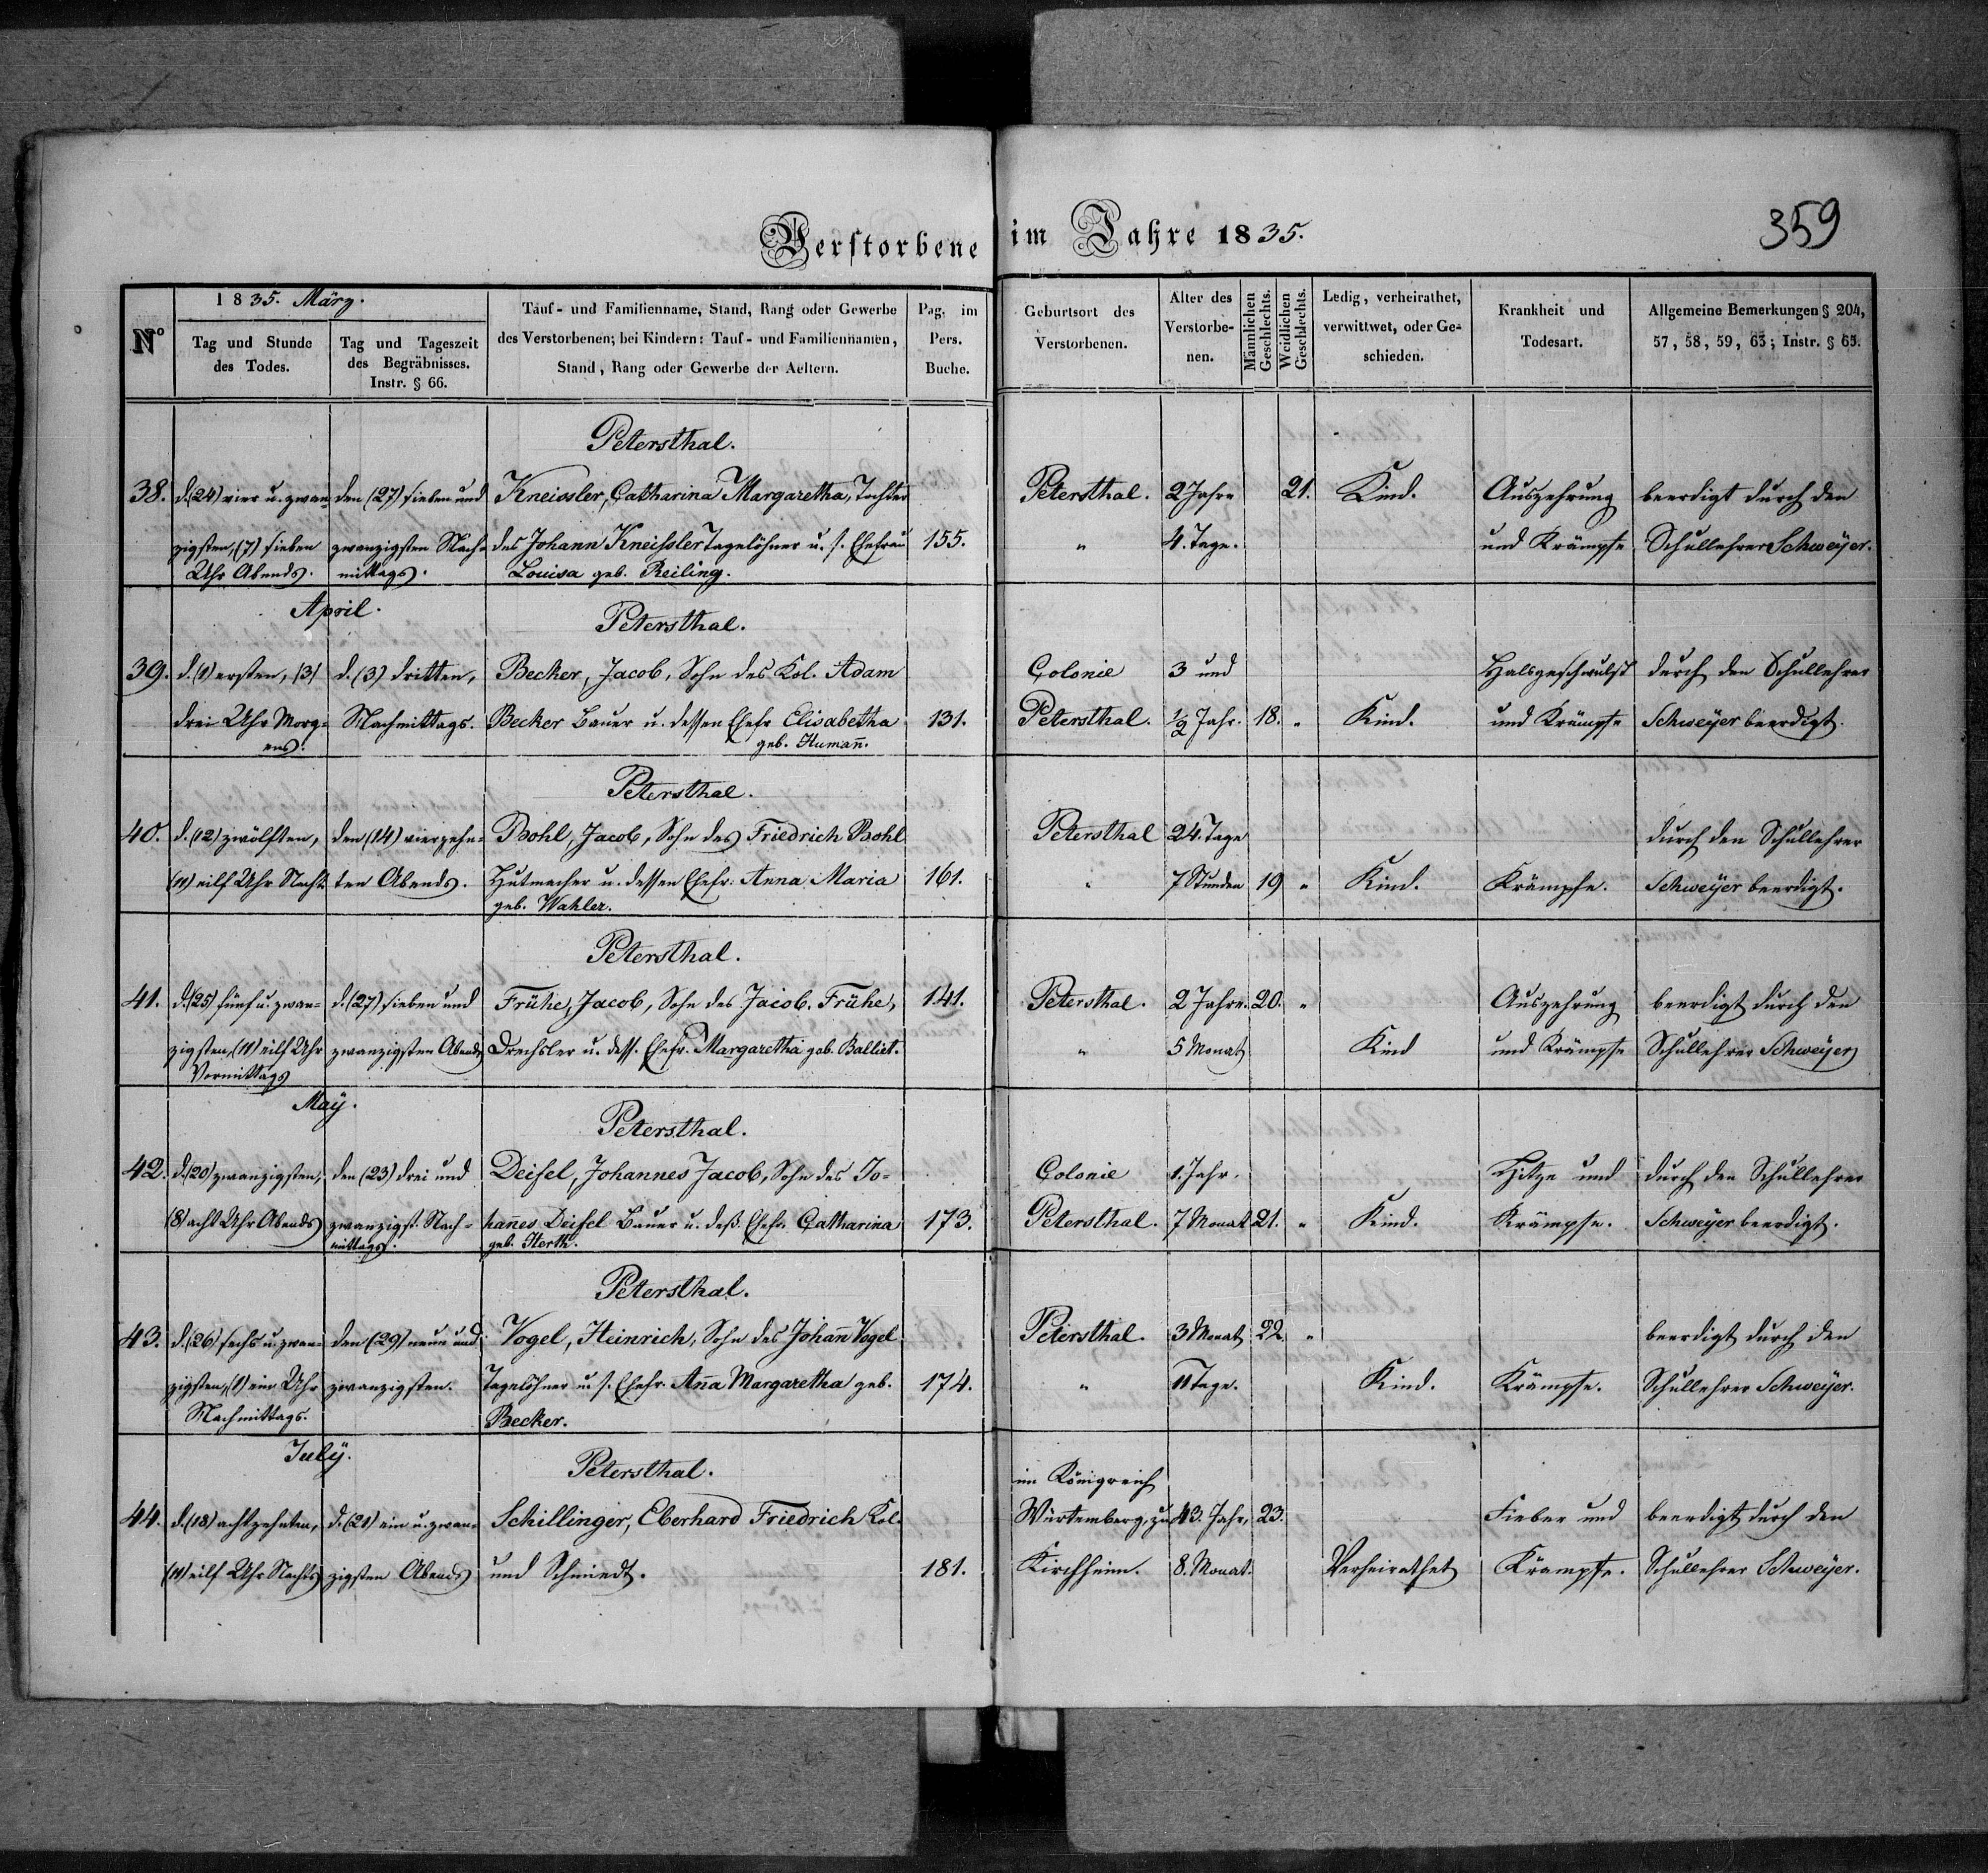 Verstorbene im Jahre 1835.
359
Nº
1835. März.
Tag und Stunde
des Todes.
Tag und Tageszeit
des Begräbnisses.
Instr. § 66.
Tauf- und Familienname, Stand, Rang oder Gewerbe
des Verstorbenen; bei Kindern: Tauf- und Familiennamen,
Stand, Rang oder Gewerbe der Aeltern.
Pag. im
Pers.
Buche.
Geburtsort des
Verstorbenen.
Alter des
Verstorbe-
nen.
Männlichen
Geschlechts.
Weiblichen
Geschlechts.
Ledig, verheirathet,
verwittwet, oder Ge-
schieden.
Krankheit und
Todesart.
Allgemeine Bemerkungen § 204,
57, 58, 59, 63; Instr. § 65.
Petersthal.
38. d. (24) vier u. zwan- den (27) sieben und Kneissler, Catharina Margaretha, Tochter Petersthal. 2 Jahre 21. Kind. Auszehrung beerdigt durch den
zigsten, (7) sieben zwanzigsten Nach- des Johann Kneissler Tagelöhner u. s. Ehefrau 155. " 4. Tage. und Krämpfe Schullehrer Schweÿer.
Uhr Abends. mittags. Louisa geb. Reiling.
April. Petersthal.
39. d. (1) ersten, (3) d. (3) dritten, Becker, Jacob, Sohn des Kol. Adam Colonie 3 und Halsgeschwulst durch den Schullehrer
drei Uhr Morg- Nachmittags. Becker Bauer u. dessen Ehefr Elisabetha 131. Petersthal. ½ Jahr. 18. " Kind. und Krämpfe Schweÿer beerdigt.
ens. geb. Human̄.
Petersthal.
40. d. (12) zwölften, den (14) vierzehn- Bohl, Jacob, Sohn des Friedrich Bohl Petersthal 24. Tage durch den Schullehrer
(11) eilf Uhr Nacht. ten Abends. Hutmacher u. dessen Ehefr: Anna Maria 161. " 7 Stunden 19 " Kind. Krämpfe. Schweÿer beerdigt.
geb. Wahler.
Petersthal.
41. d. (25) fünf u. zwan- d. (27) sieben und Frühe, Jacob, Sohn des Jacob. Frühe, 141. Petersthal. 2 Jahre. 20. " Auszehrung beerdigt durch den
zigsten, (11) eilf Uhr zwanzigsten Abends Drechsler u. dess. Ehefr. Margaretha geb. Balliet. " 5 Monat Kind und Krämpfe Schullehrer Schweÿer
Vormittags
Maÿ. Petersthal.
42. d. (20) zwanzigsten, den (23) drei und Deisel, Johannes Jacob, Sohn des Jo- Colonie 1. Jahr. Hitze und durch den Schullehrer
(8) acht Uhr Abends zwanzigst. Nach- han̄es Deisel Bauer u. deß. Ehefr. Catharina 173. Petersthal. 7 Monat 21. " Kind. Krämpfe. Schweÿer beerdigt.
mittags. geb. Herth.
Petersthal.
43. d. (26) sechs u. zwan- den (29) neun und Vogel, Heinrich, Sohn des Johan̄ Vogel Petersthal. 3 Monat 22. " beerdigt durch den
zigsten, (1) ein Uhr zwanzigsten. Tagelöhner u. s. Ehefr. An̄a Margaretha geb. 174. " 11 Tage. Kind. Krämpfe. Schullehrer Schweÿer.
Nachmittags. Becker.
Julÿ. Petersthal. im Königreich
44. d. (18) achtzehnten, d. (21) ein u. zwan- Schillinger, Eberhard Friedrich Kol. Würtemberg, zu 43. Jahr, 23. Fieber und beerdigt durch den
(11) eilf Uhr Nachts zigsten Abends und Schmiedt. 181. Kirchheim. 8. Monat. Verheirathet Krämpfe. Schullehrer Schweÿer.